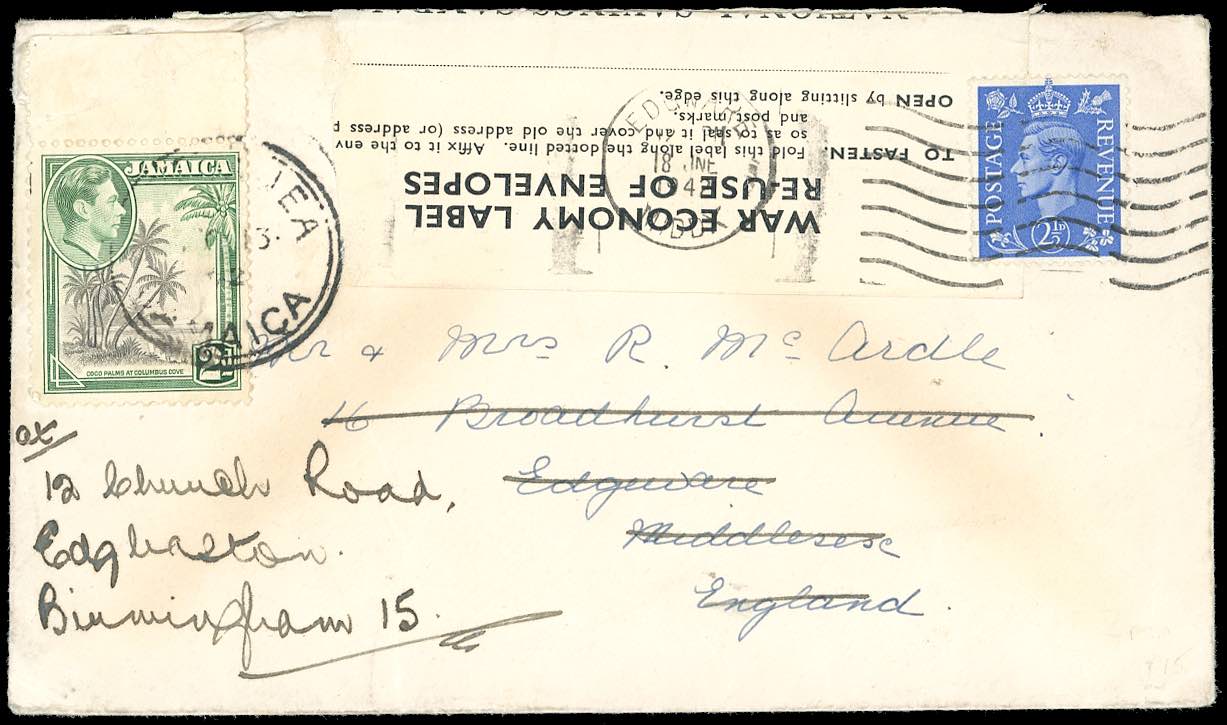 NATIONAL SAVINGS
OPEN by slitting along this edge.
and post marks.
so as to seal it and cover the old address (or address p
TO FASTEN. Fold this label along the dotted line. Affix it to the env
RE-USE OF ENVELOPES
WAR ECONOMY LABEL
EDGWARE
18 JNE
POSTAGE
REVENUE
2½D
JAMAICA
COCO PALMS AT COLUMBUS COVE
MAICA
Mr & Mrs R Mc Ardle
16 Broadhurst Avenue
Edgware
Middlesex
England
at
12 Church Road,
Edgbaston.
Birmingham 15.